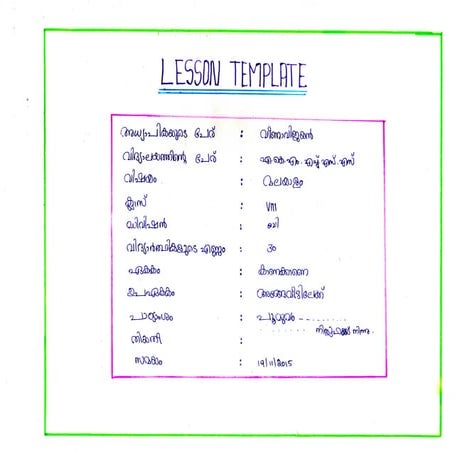 LESSON TEMPLATE
അധ്യാപികയുടെ പേര് : വീണാവിജയൻ
വിദ്യാലയത്തിന്റെ പേര് : എ.കെ.എം.എച്ച്.എസ്.എസ്
വിഷയം : മലയാളം
ക്ലാസ് : VIII
ഡിവിഷൻ : ബി
വിദ്യാർത്ഥികളുടെ എണ്ണം : 30
ഏകകം : കണ്ണെക്കാണെ
ഉപഏകകം : അമ്മവീട്ടിലേക്ക്
പാഠ്യാംശം : പൂവുവം ..........
........ നിന്നു.
തിയതി :
സമയം : 19/11/2015